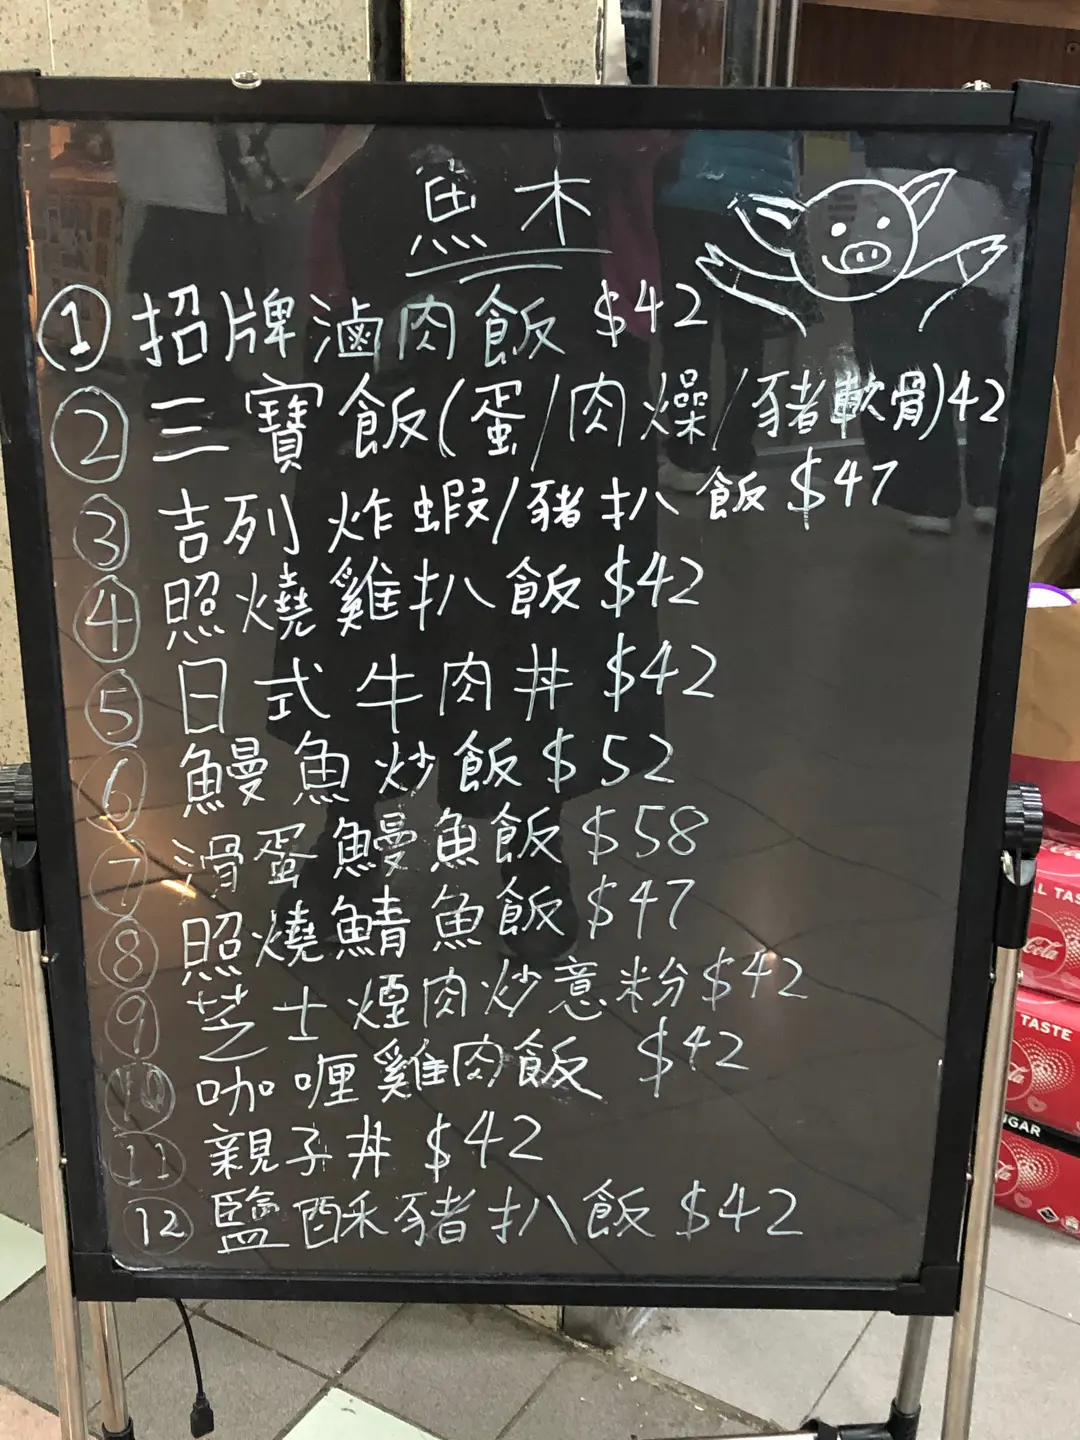 魚木
① 招牌滷肉飯 $42
② 三寶飯(蛋/肉燥/豬軟骨)42
③ 吉列炸蝦/豬扒飯 $47
④ 照燒雞扒飯 $42
⑤ 日式牛肉丼 $42
⑥ 鰻魚炒飯 $52
⑦ 滑蛋鰻魚飯 $58
⑧ 照燒鯖魚飯 $47
⑨ 芝士煙肉炒意粉 $42
⑩ 咖喱雞肉飯 $42
⑪ 親子丼 $42
⑫ 鹽酥豬扒飯 $42
L TAS
Coca
TASTE
GAR